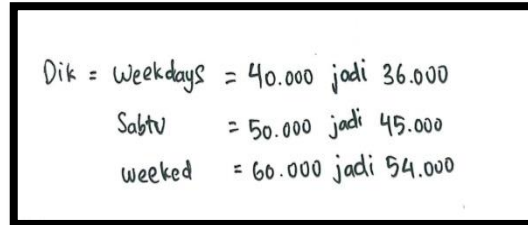 Dik = Weekdays = 40.000 jadi 36.000
Sabtu = 50.000 jadi 45.000
weeked = 60.000 jadi 54.000